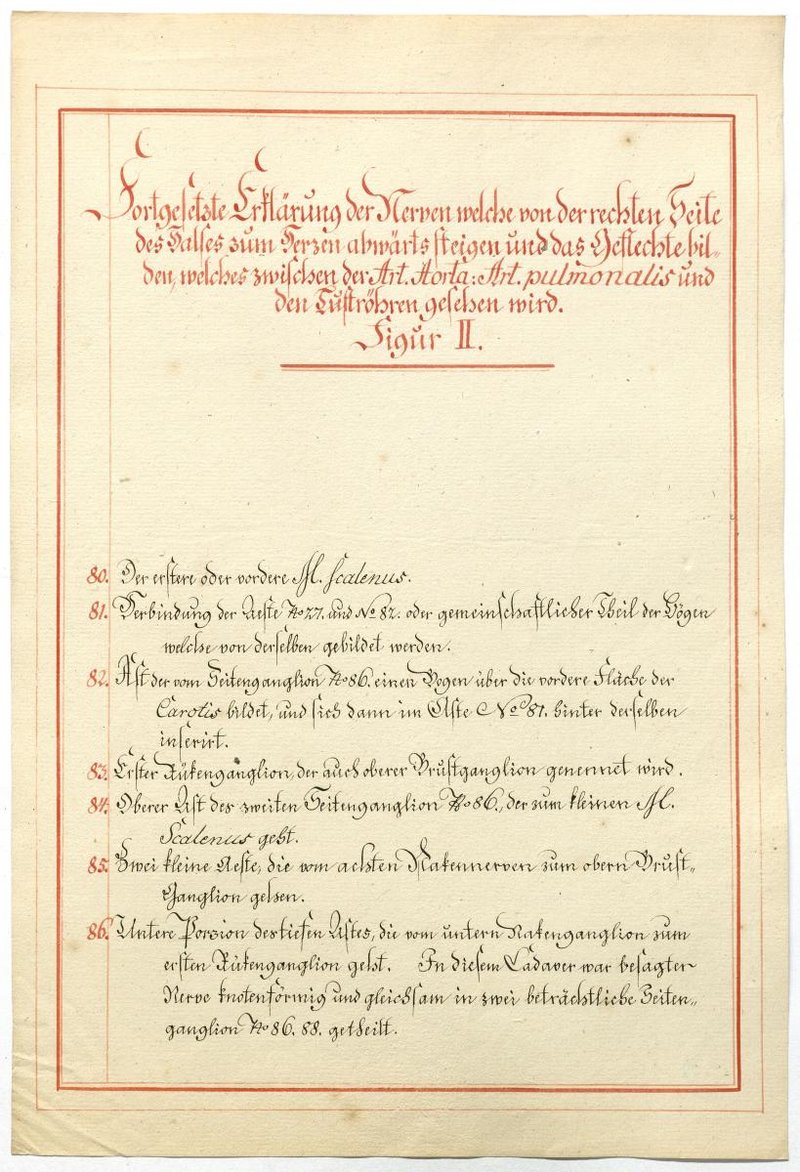 Fortgesetzte Erklärung der Nerven welche von der rechten Seite
des Halses zum Herzen abwärts steigen und das Geflechte bil-
den, welches zwischen der Art. Aorta: Art. pulmonalis und
den Luftröhren gesehen wird.
Figur II.
80. Der erstere oder vordere M. Scalenus.
81. Verbindung der Aeste No 77. und No 82. oder gemeinschaftlicher Theil der Bögen
welche von derselben gebildet werden.
82. Ast der vom Seitenganglion No 86. einen Bogen über die vordere Fläche der
Carotis bildet, und sich dann im Aste No 81. hinter derselben
inserirt.
83. Erster Rükenganglion, der auch oberer Brustganglion genennet wird.
84. Oberer Ast des zweiten Seitenganglion No 86., der zum kleinen M.
Scalenus geht.
85. Zwei kleine Aeste, die vom achten Nakennerven zum obern Brust-
Ganglion gehen.
86. Untere Porzion des tiefen Astes, die vom untern Nakenganglion zum
ersten Rükenganglion geht. In diesem Cadaver war besagter
Nerve knotenförmig und gleichsam in zwei beträchtliche Seiten-
ganglion No 86. 88. getheilt.